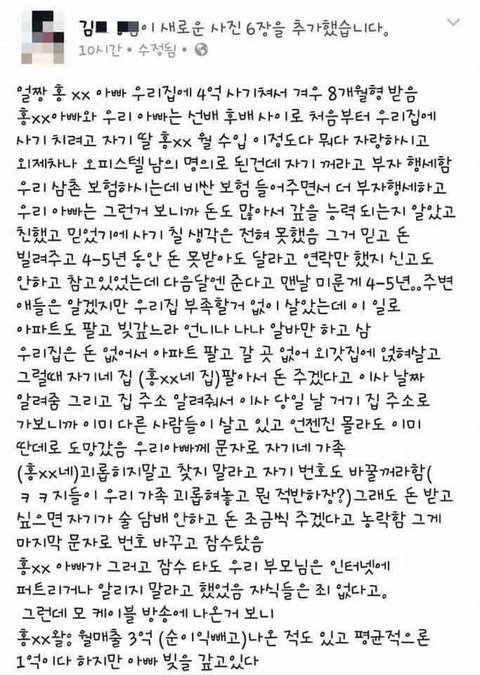 김   이 새로운 사진 6장을 추가했습니다.
10시간 · 수정됨 ·
얼짱 홍 xx 아빠 우리집에 4억 사기쳐서 겨우 8개월형 받음
홍xx아빠와 우리 아빠는 선배 후배 사이로 처음부터 우리집에
사기 치려고 자기 딸 홍xx 월 수입 이정도다 뭐다 자랑하시고
외제차나 오피스텔 남의 명의로 된건데 자기 꺼라고 부자 행세함
우리 삼촌 보험하시는데 비싼 보험 들어주면서 더 부자행세하고
우리 아빠는 그런거 보니까 돈도 많아서 갚을 능력 되는지 알았고
친했고 믿었기에 사기 칠 생각은 전혀 못했음 그거 믿고 돈
빌려주고 4-5년 동안 돈 못받아도 달라고 연락만 했지 신고도
안하고 참고있었는데 다음달엔 준다고 맨날 미룬게 4-5년..주변
애들은 알겠지만 우리집 부족할거 없이 살았는데 이 일로
아파트도 팔고 빚갚느라 언니나 나나 알바만 하고 삼
우리집은 돈 없어서 아파트 팔고 갈 곳 없어 외갓집에 얹혀살고
그럴때 자기네 집 (홍xx네 집)팔아서 돈 주겠다고 이사 날짜
알려줌 그리고 집 주소 알려줘서 이사 당일 날 거기 집 주소로
가보니까 이미 다른 사람들이 살고 있고 언젠진 몰라도 이미
딴데로 도망갔음 우리아빠께 문자로 자기네 가족
(홍xx네)괴롭히지말고 찾지 말라고 자기 번호도 바꿀꺼라함(
ㅋㅋ지들이 우리 가족 괴롭혀놓고 뭔 적반하장?)그래도 돈 받고
싶으면 자기가 술 담배 안하고 돈 조금씩 주겠다고 농락함 그게
마지막 문자로 번호 바꾸고 잠수탔음
홍xx 아빠가 그러고 잠수 타도 우리 부모님은 인터넷에
퍼트리거나 알리지 말라고 했었음 자식들은 죄 없다고.
그런데 모 케이블 방송에 나온거 보니
홍xx왈: 월매출 3억 (순이익빼고)나온 적도 있고 평균적으론
1억이다 하지만 아빠 빚을 갚고있다